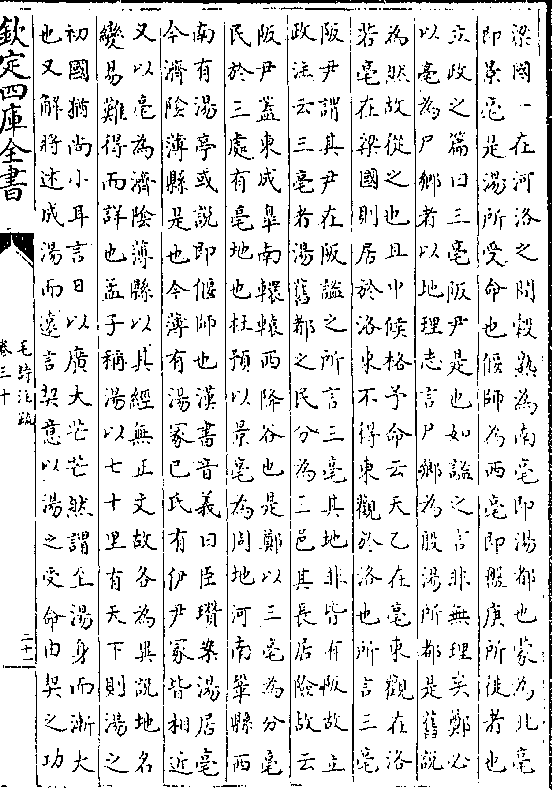 梁國一在河洛之間穀熟為南亳即湯都也蒙為北亳
即景亳是湯所受命也偃師為西亳即盤庚所徙者也
立政之篇曰三亳阪尹是也如謐之言非無理矣鄭必
以亳為尸鄉者以地理志言尸鄉為殷湯所都是舊說
為然故從之也且中候格予命云天乙在亳東觀在洛
若亳在梁國則居於洛東不得東觀於洛也所言三亳
阪尹謂其尹在阪謐之所言三亳其地非皆有阪故立
政注云三亳者湯舊都之民分為三邑其長居險故云
阪尹蓋東成皐南轘轅西降谷也是鄭以三亳為分亳
民於三處有亳地也杜預以景亳為周地河南鞏縣西
南有湯亭或說即偃師也漢書音義曰臣瓚案湯居亳
今濟陰薄縣是也今薄有湯冢巳氏有伊尹冢皆相近
又以亳為濟陰薄縣以其經無正文故各為異說地名
變易難得而詳也孟子稱湯以七十里有天下則湯之
初國猶尚小耳言日以廣大芒芒然謂至湯身而漸大
也又解將述成湯而遠言契意以湯之受命由契之功
欽定四庫全書
毛詩注疏
卷三十
二十二